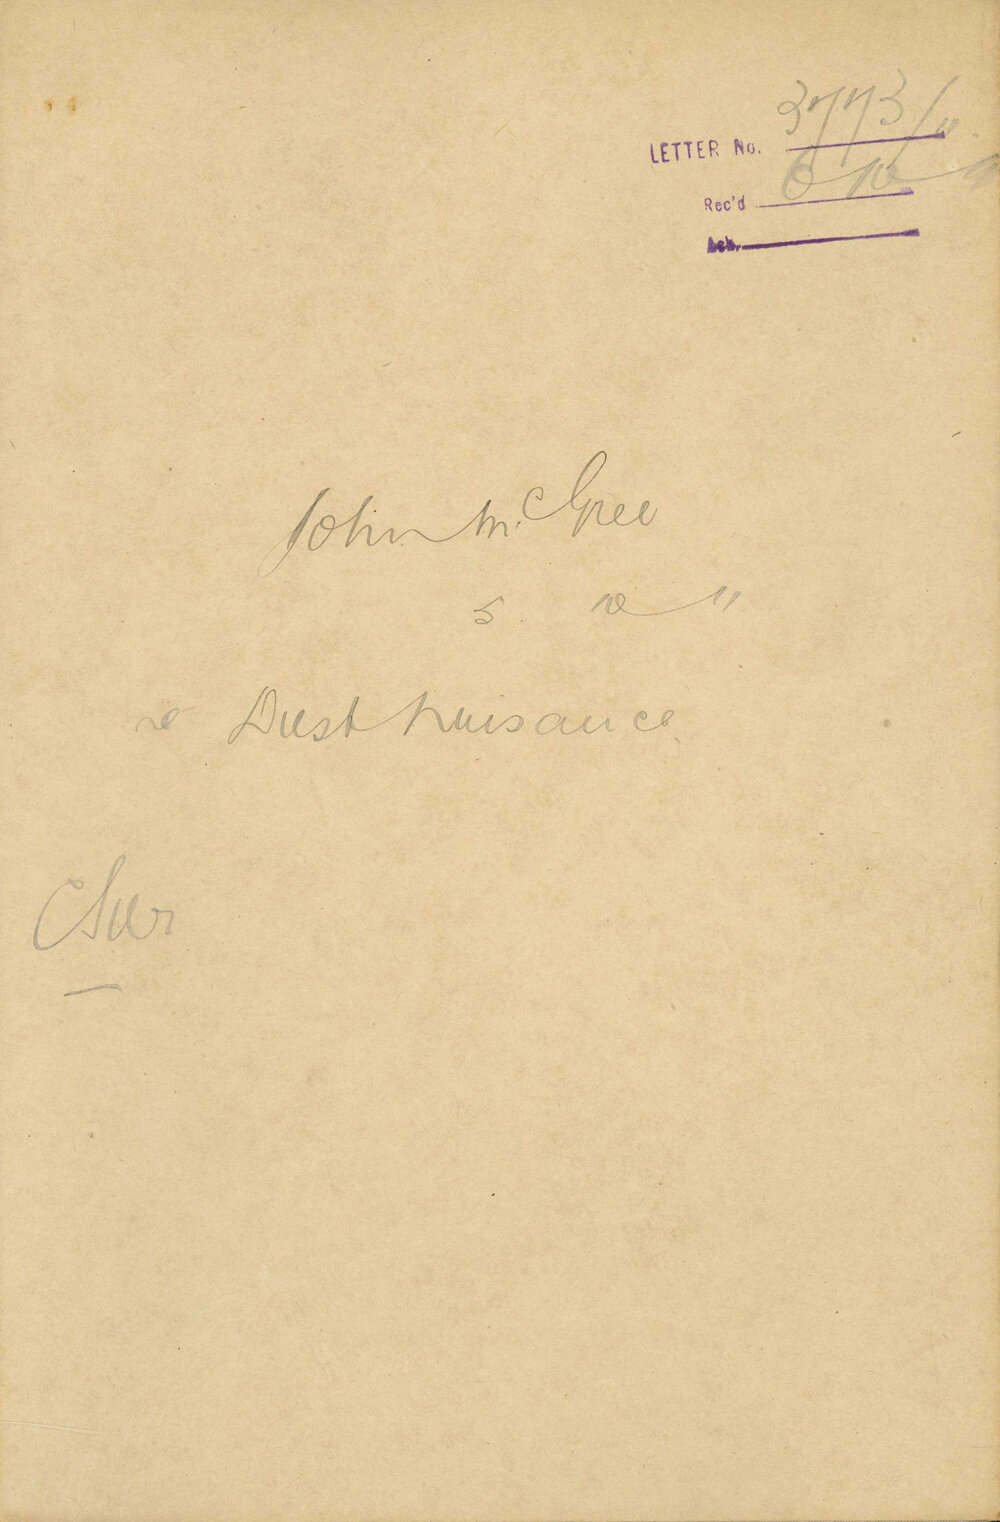 LETTER No. 3773/11
Rec'd 6 10
Ack.
John McGree
5 10 11
re Dust nuisance